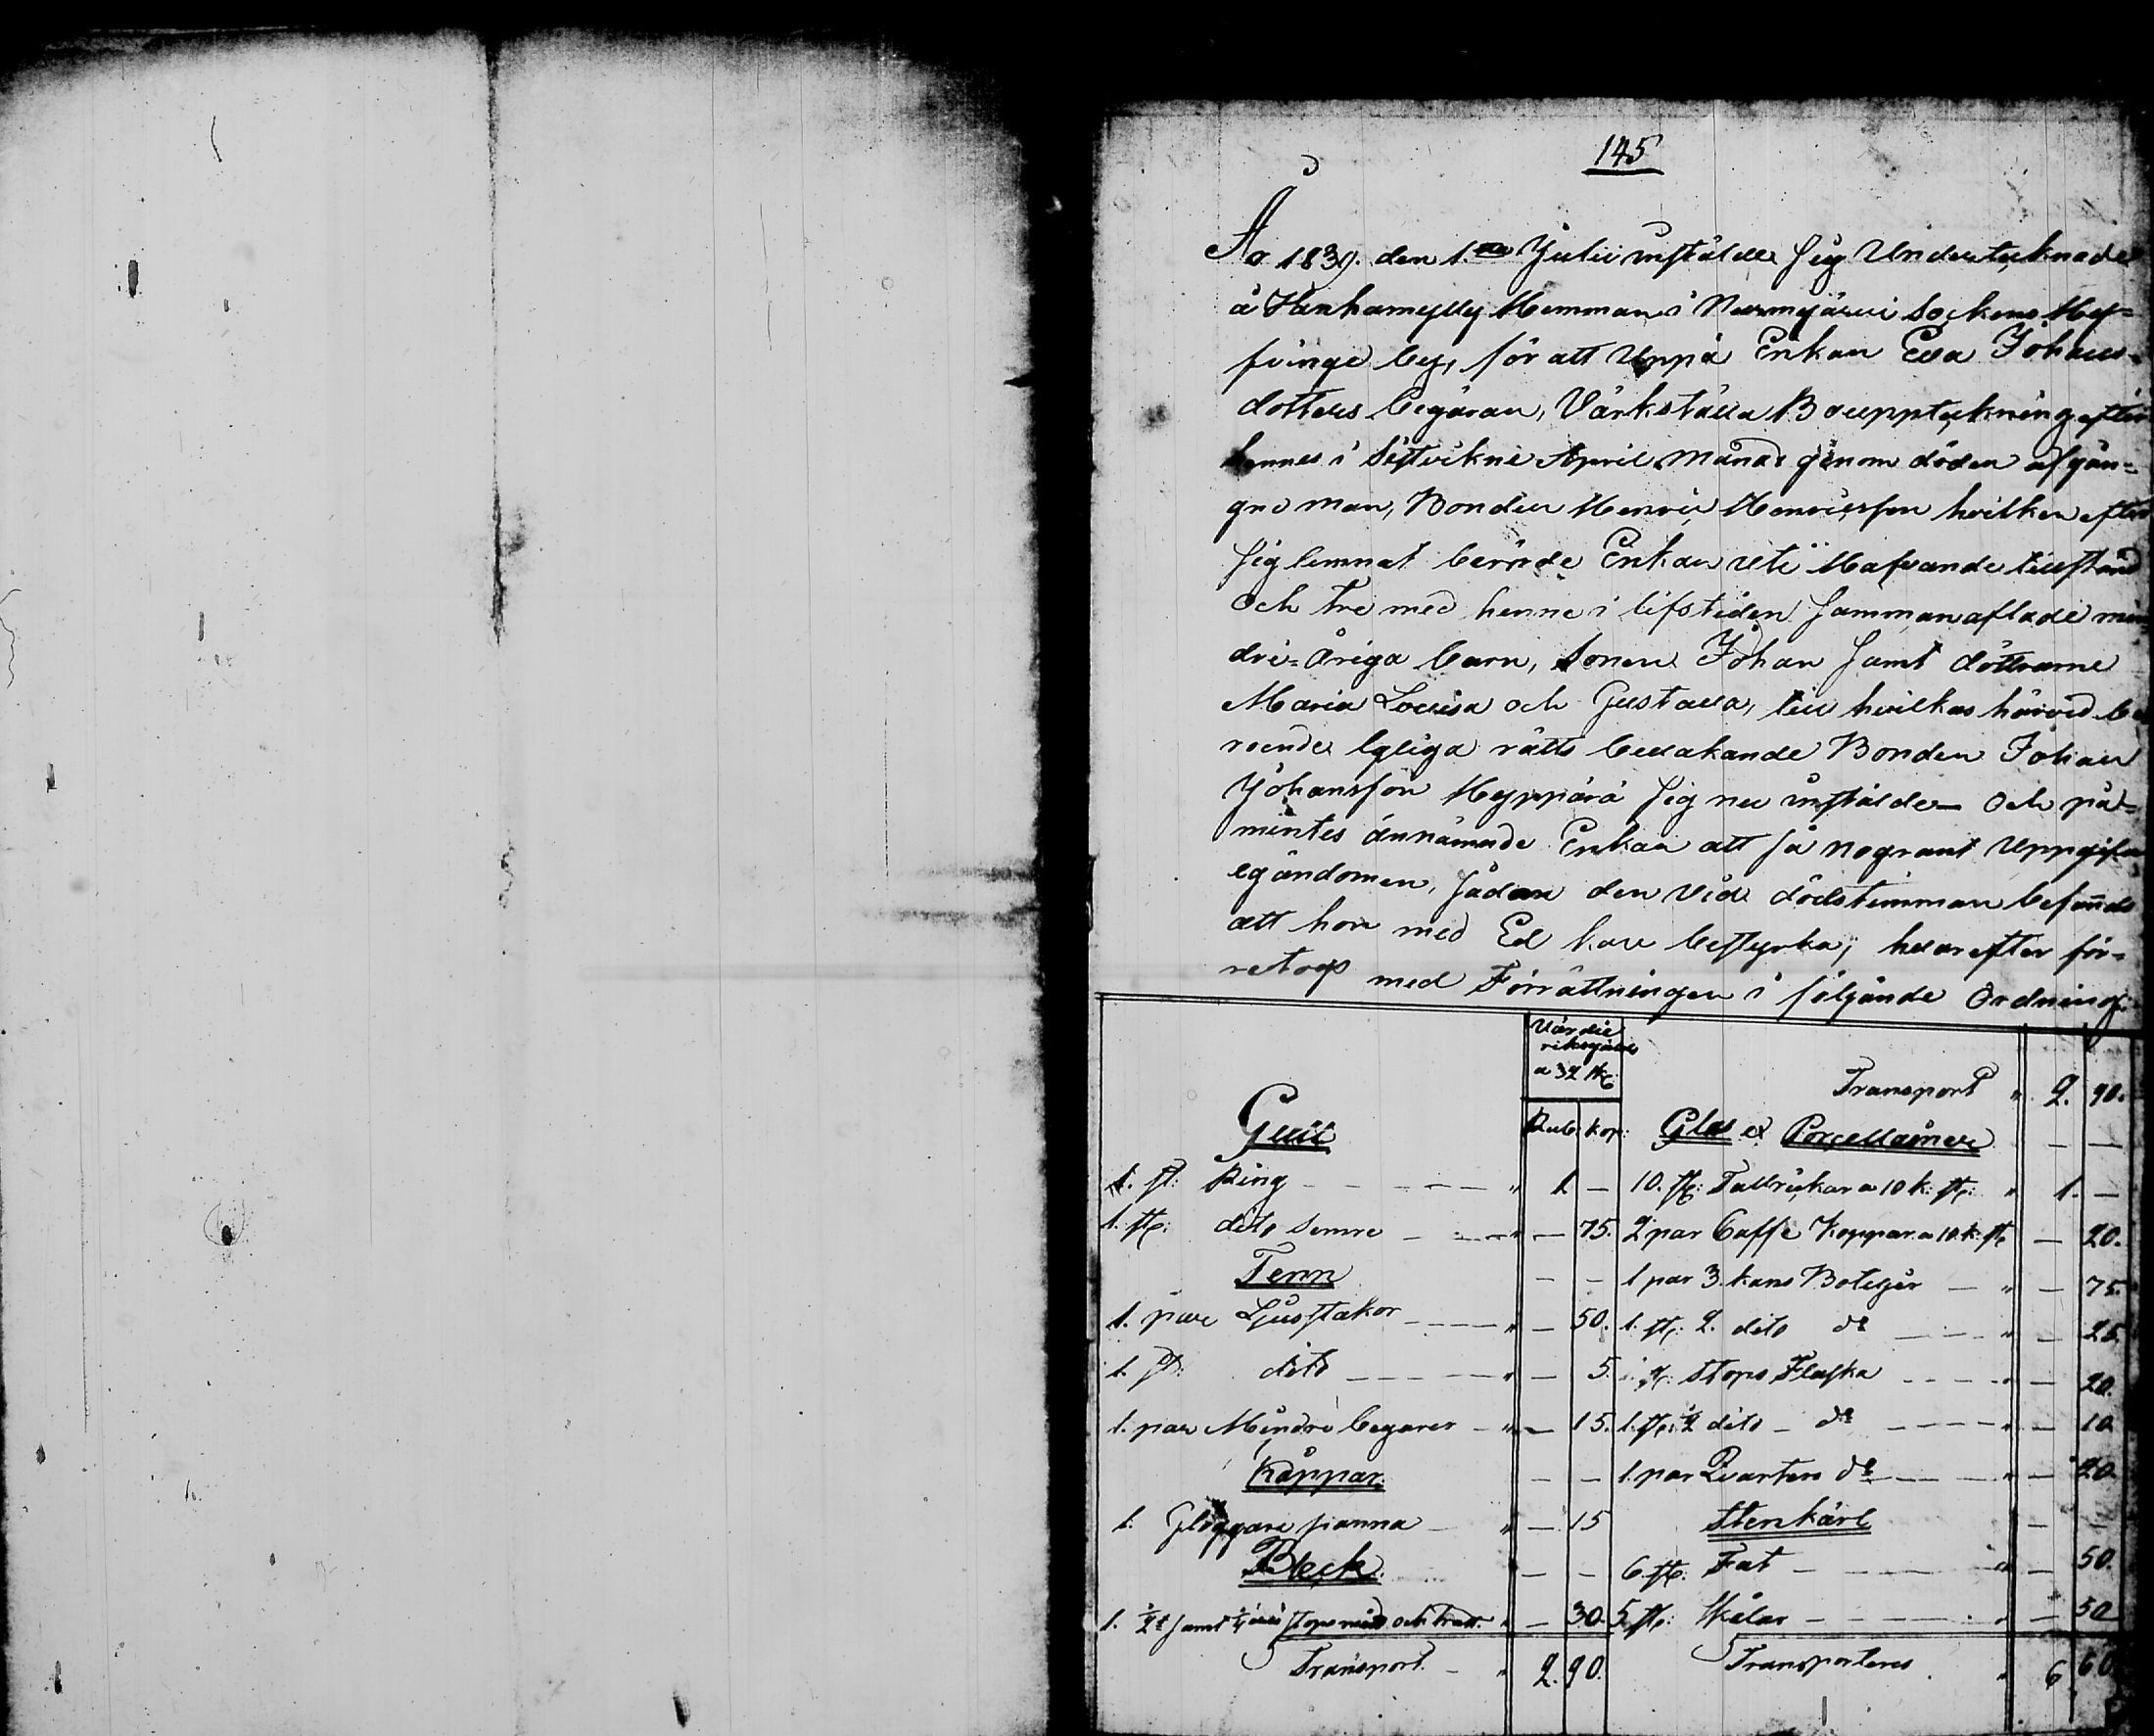 145
År 1839. den 1.sta Julii instälde sig Undertecknade
å Hanhamylly Hemman i Nurmijärvi Sockens Hy-
finge by, för att Uppå Enkan Eva Johans-
dotters begäran, Värkställa Bouppteckning efter
hennes i sistvikne April Månad genom döden afgån-
gne man, Bonden Henric Henricsson hvilken efter
sig lemnat berörde Enkan uti Hafvande tillstånd
och tre med henne i lifstiden sammanaflade min
dre-åriga barn, sonen Johan samt döttrarne
Maria Lovisa och Gustava, till hvilkas härvid be
roende lagliga rätts bevakande Bonden Johan
Johansson Hyppärä sig nu instälde och på-
mintes ännämnde Enkan att så nogrant Uppgifva
egändomen, sådan den vid dödstimman befands
att hon med Ed kan bestyrka; hvarefter för-
retogs med Förrättningen i följande Ordning:
Värdie
riksgäld
a 32 sk:
Rub: kop:
Gull
1. st: Ring " 1 —
1. st: dito semre " — 75.
Tenn — —
1. par Ljusstakor " — 50.
1. st: dito " — 5.
1. par Mindre begarer " — 15.
Koppar — —
1. Glöggare panna " — 15
Bleck — —
1. ½t samt ¼ stops mått och tratt " — 30.
Transport " 2. 90.
Transport " 2. 90.
Glas et Porcellainer — —
10. st: Tallrickar a 10 k: st: " 1. —
2 par Caffe Koppar a 10. k: st — 20.
1 par 3. kans Botelljer " — 75.
1. st: 2. dito do " — 25.
1 st: Stops Flaska " — 20.
1. st: ½ dito do " — 10
1. par Qvarters do " — 20.
Stenkärl — —
6 st: Fat " — 50.
5 st: Skålar " — 50
Transporteres " 6 60